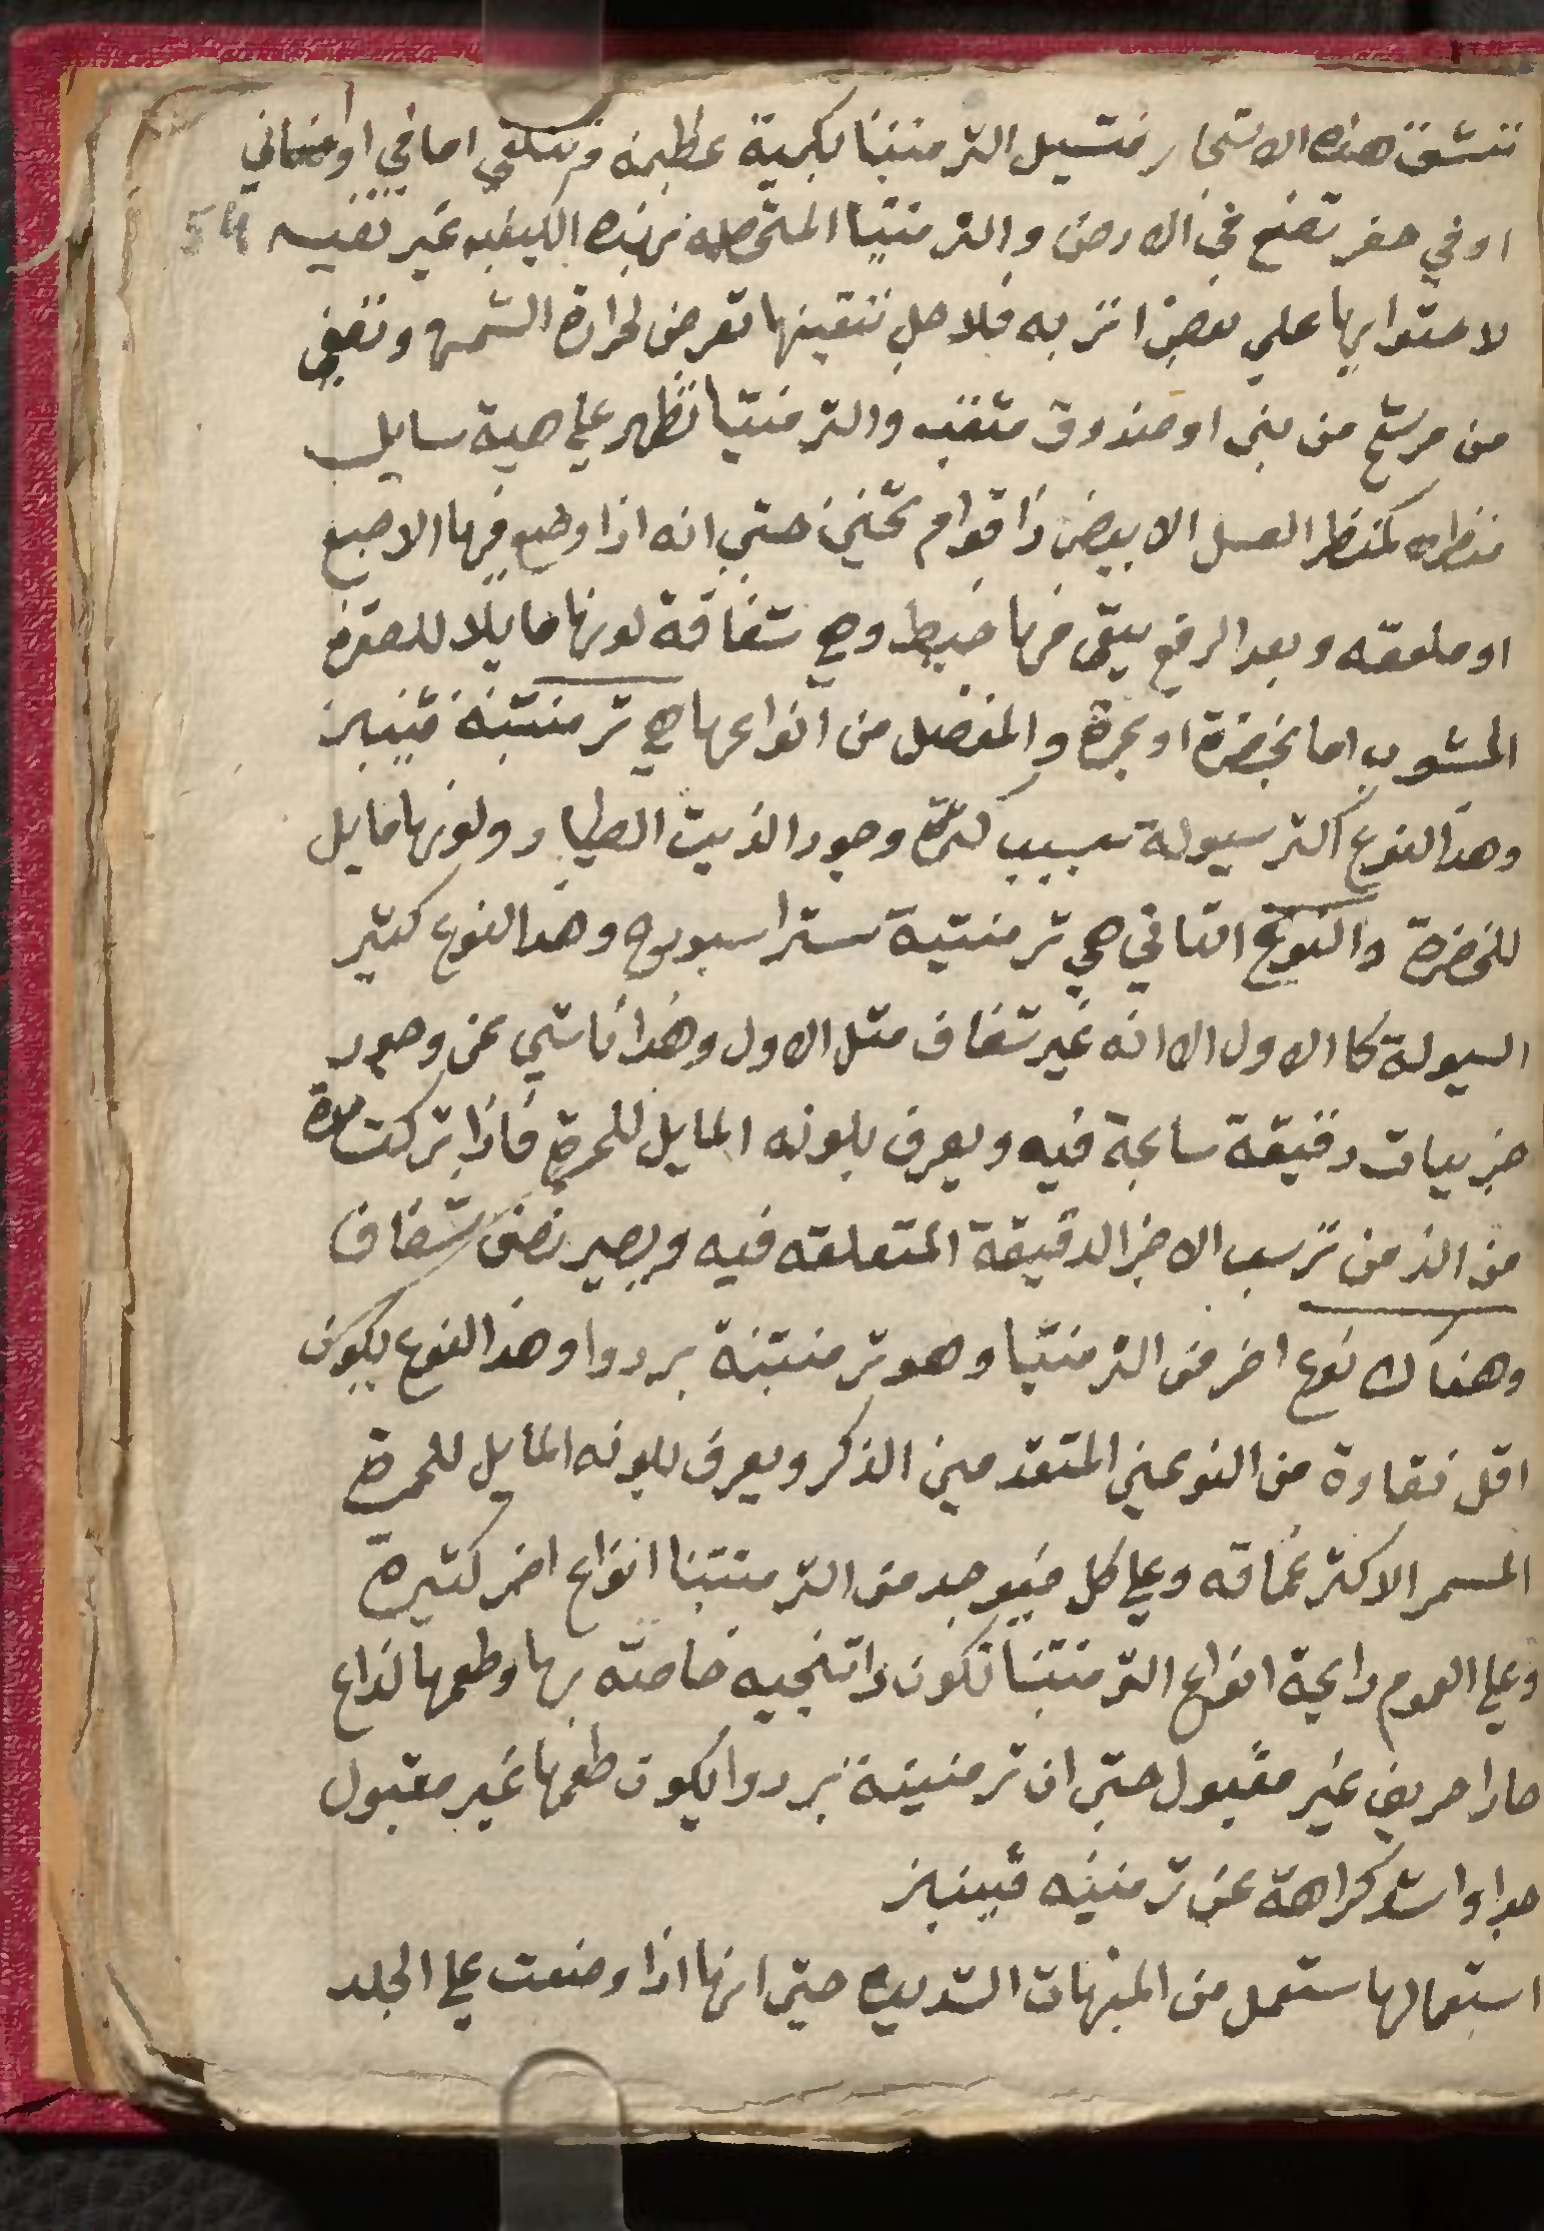 تنشق هذه الاشجار فتسيل الترمنتينا بكمية عظيمة وتتلقي اما في اوعية اني
او في حفر تصنع في الارض والترمنتينا المتحصله بهذه الكيفيه غير نقيه 54
لاحتوايها علي بعض اتربه فلاجل تنقيتها تعرض لحرارة الشمس وتصفي
من مرشح من بني او صندوق مثقب والترمنتينا تظهر علي هية سايل
منظره كمنظر العسل الابيض ذا قوام تخين حتي انه اذا وضع فيها الاصبع
او ملعقه وبعد الرفع يبقي فيها خيط وهي شفافة لونها مايلا للصفرة
المشوب اما بخضرة او بحمرة والمفضل من انواعها هي ترمنتينة فينيز
وهذا النوع اكثر سيولة بسبب كثرة وجود الزيت الطيار ولونها مايل
للخضرة والنوع الثاني هي ترمنتينة ستراسبورج وهذا النوع كثير
السيولة كا الاول الا انه غير شفاف مثل الاول وهذا ناشي عن وجود
جزييات دقيقة سابحة فيه ويعرف بلونه المايل للحمرة فاذا تركت مدة
من الزمن ترسب الاجزا الدقيقة المتعلقه فيه ويصير نصف شفاف
وهناك نوع اخر من الترمنتينا وهو ترمنتينة بردوا وهذا النوع يكون
اقل نقاوة من النوعين المتقدمين الذكر ويعرف بلونه المايل للحمرة
المسمر الاكثر غماقه وعلي كل فيوجد من الترمنتينا انواع اخر كثيرة
وعلي العموم رايحة انواع الترمنتينا تكون راتنجيه خاصة بها وطعمها لذاع
حارا حريف غير مقبول حتي ان ترمنتينة بردوا يكون طعمها غير مقبول
جدا واشد كراهة عن ترمنتينه فينيز
استعمالها ستعمل من المنبهات الشديده حتي انها اذا وضعت علي الجلد